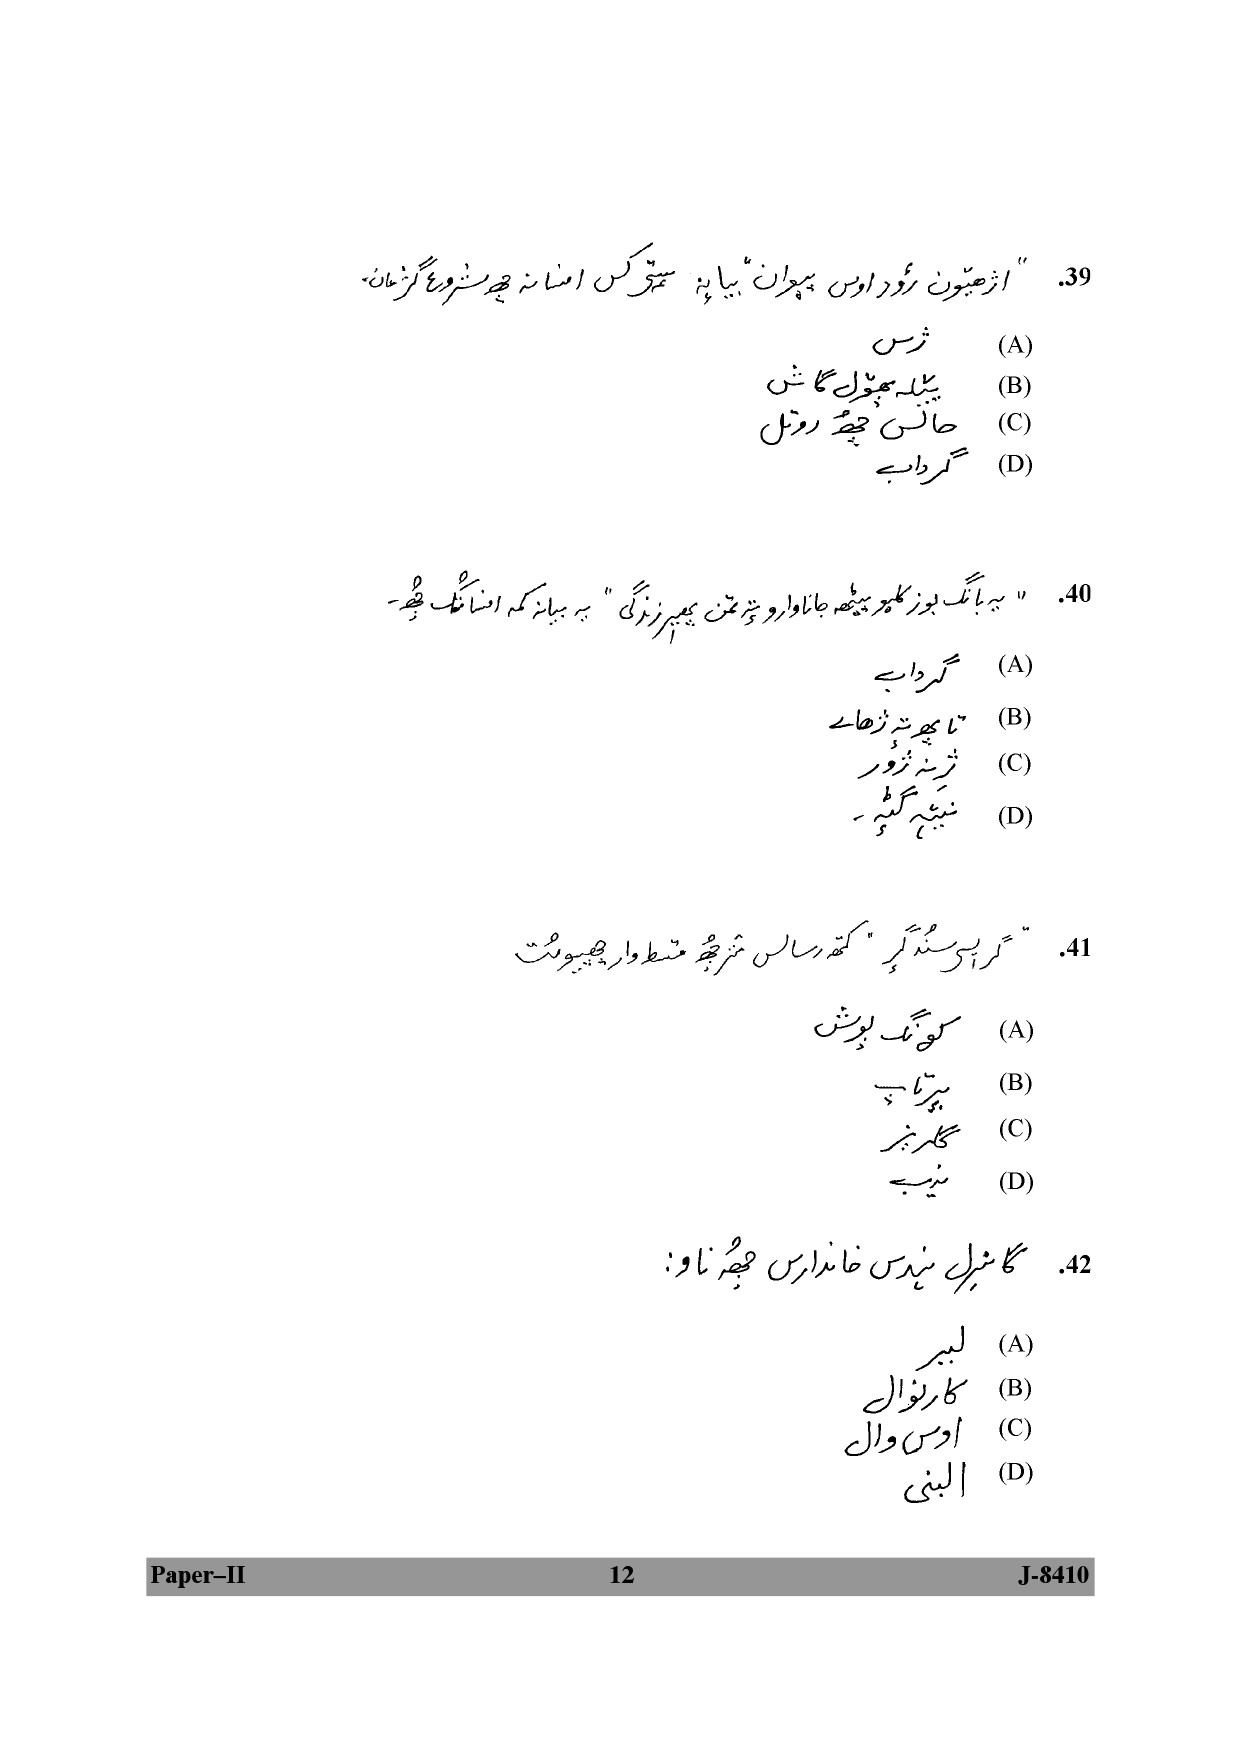 39. "اژھیٚون رُود اوس پیوان" بیایہِ سٕتۍ کس افسانہ چھ شروع گژھان۔
(A) ژس
(B) پٹلہ پھۆل گاش
(C) حانس چھُ روتل
(D) گرداب
40. "یہ بانگ بوز کلیو پیٹھہ جاناوارو تہٕ تمن پھیر زندگی" یہ بیانہ کمہ افسانُک چھُ۔
(A) گرداب
(B) تاپھ تہٕ ژھاے
(C) ژہنہ ژور
(D) نیتہٕ گٹہٕ ۔
41. "گرایی سُند گرٕ" کتھ رسالس منز چھُ قسط وار چھپیومُت
(A) کونگ پوش
(B) پرتاپ
(C) گلریز
(D) نیب
42. کاشرِل ہندس خاندارس چھُ ناو:
(A) لبیر
(B) کارنوال
(C) اوس وال
(D) البنی
Paper–II 12 J-8410